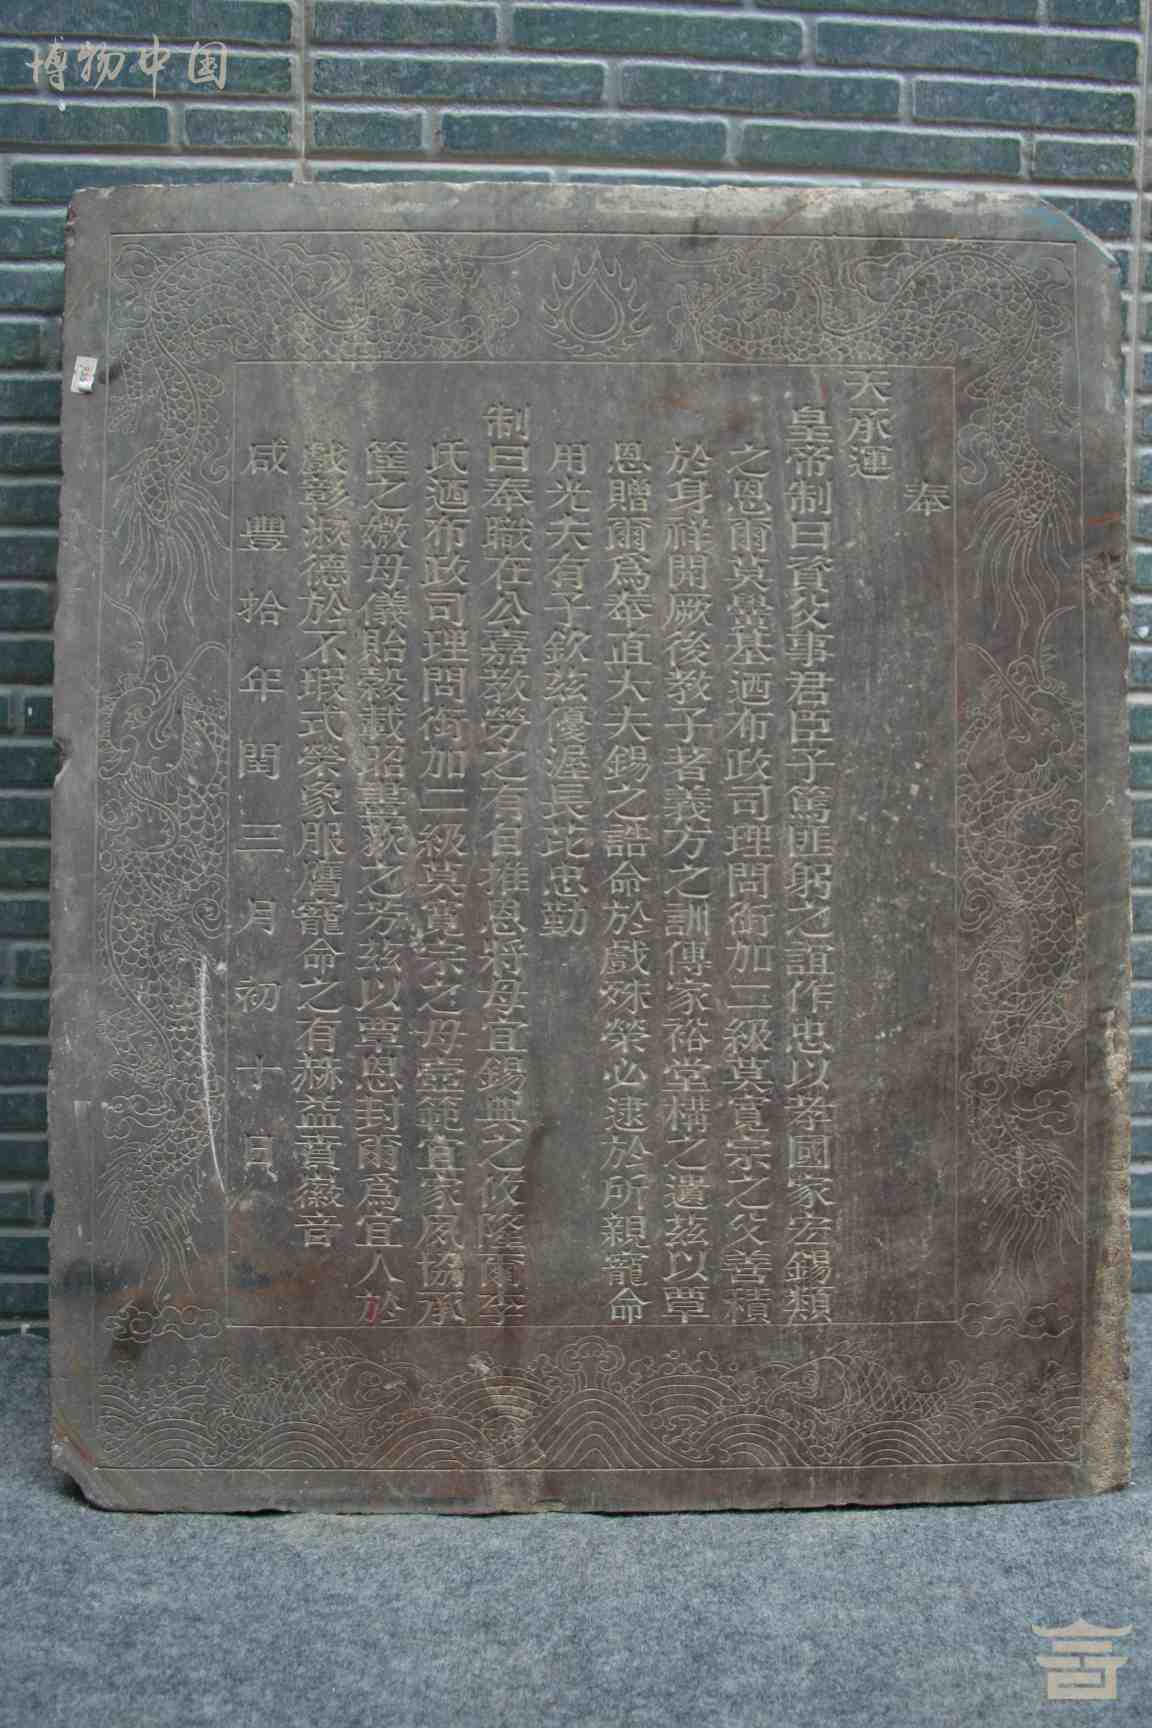 博物中国
奉
天承運
皇帝制曰資父事君臣子篤匪躬之誼作忠以孝國家宏錫類
之恩爾莫基迺布政司理問銜加二級莫寬宗之父善積
於身祥開厥後教子著義方之訓傳家裕堂構之遺茲以覃
恩贈爾為奉直大夫錫之誥命於戲殊榮必逮於所親寵命
用光夫有子欽茲優渥長芘忠勤
制曰奉職在公嘉教勞之有自推恩將母宜錫典之攸隆爾李
氏迺布政司理問銜加二級莫寬宗之母壼範宜家夙協承
筐之媺母儀貽穀載昭畫荻之芳茲以覃恩封爾爲宜人於
戲彰淑德於不瑕式榮象服膺寵命之有赫益賁徽音
咸豐拾年閏三月初十日